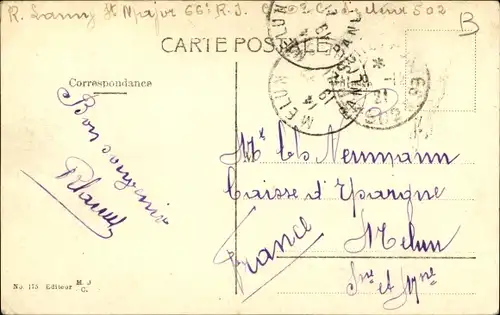 R. Lanny St Major 66e R.I. 502
CARTE POSTALE
B
MELUN
MELUN
Correspondance
Bon souvenir
RLanny
Mr Ch Neumann
Caisse d'Epargne
Melun
Sne et Mne
France
No. 175 Editeur M. J
C.